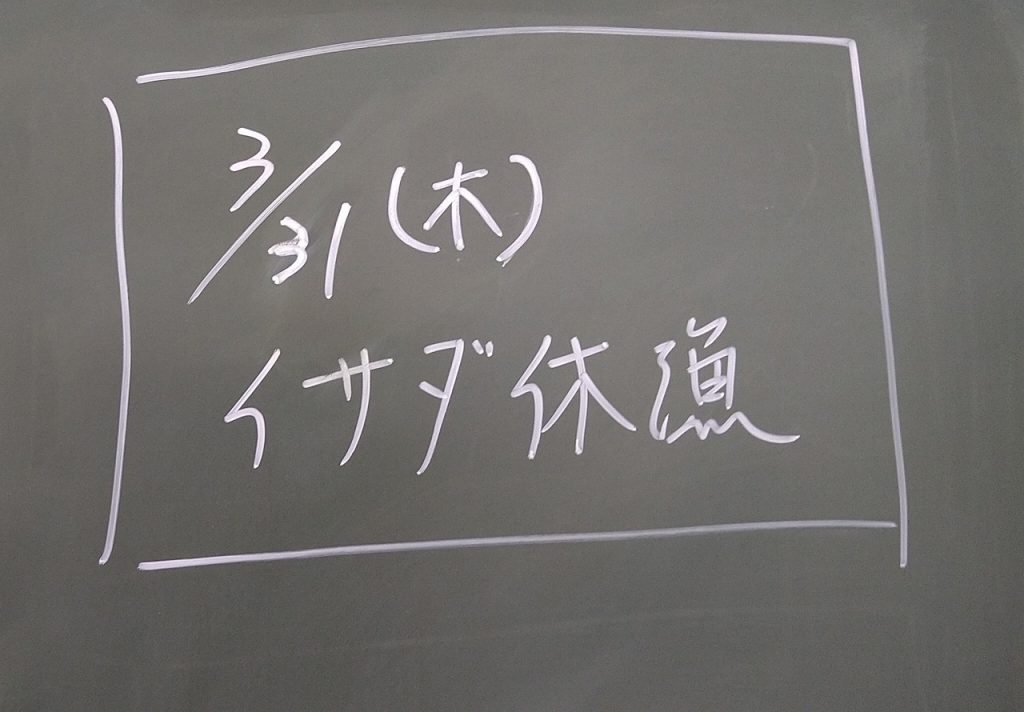 3/31(木)
イサダ休漁